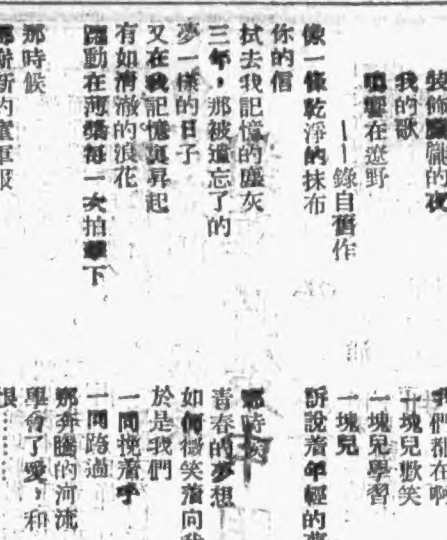 裝飾朦朧的夜
我的歌
鳴響在遼野
——錄自舊作
像一條乾淨的抹布
你的信
拭去我記憶的塵灰
三年，那被遺忘了的
夢一樣的日子
又在我記憶裏昇起
有如清澈的浪花
躍動在河槳每一次拍擊下
那時候
新的童軍服
我們都在啊
一塊兒歡笑
一塊兒學習
一塊兒
訴說着年輕的
那時候
青春的夢想
如何微笑着向我
於是我們
一同挽着手
一同跨過
那奔騰的河流
學會了愛，和
恨……